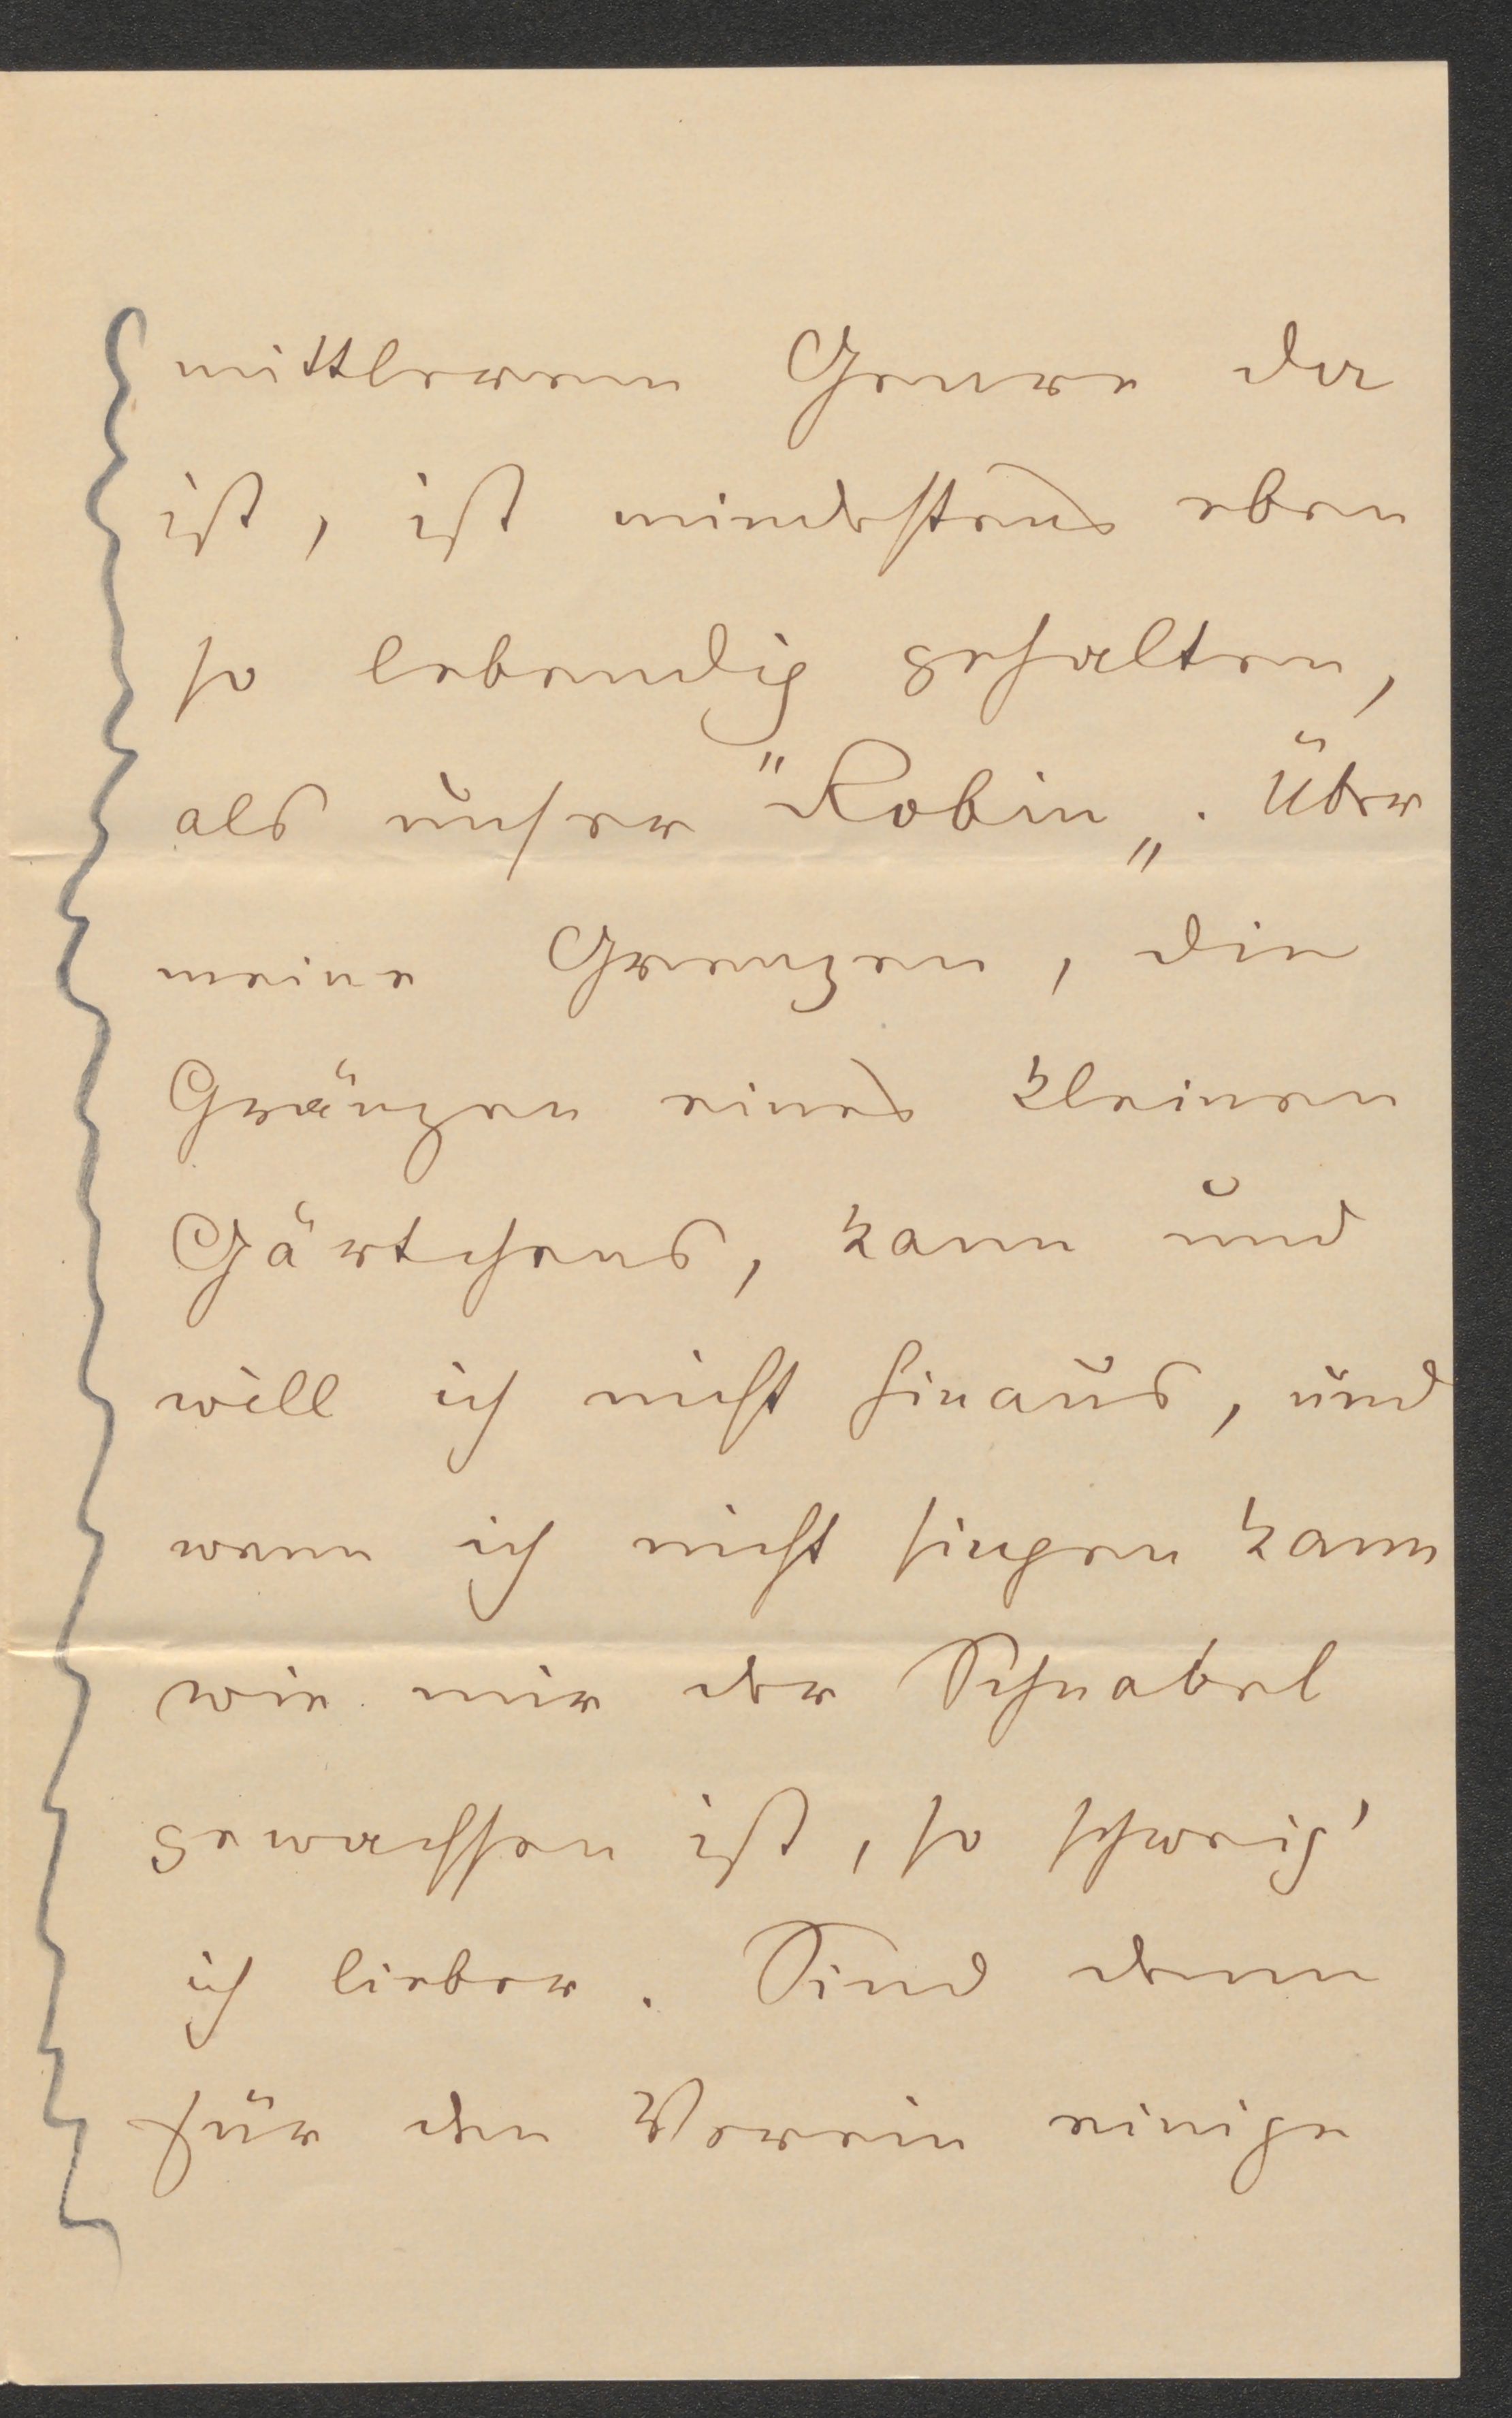 mittlerem Genre da
ist, ist mindestens eben
so lebendig gehalten,
als unser "Robin„. Über
meine Grenzen, die
Gränzen eines kleinen
Gärtchens, kann und
will ich nicht hinaus, und
wenn ich nicht singen kann
wie mir der Schnabel
gewachsen ist, so schweig'
ich lieber. Sind denn
für den Verein einige